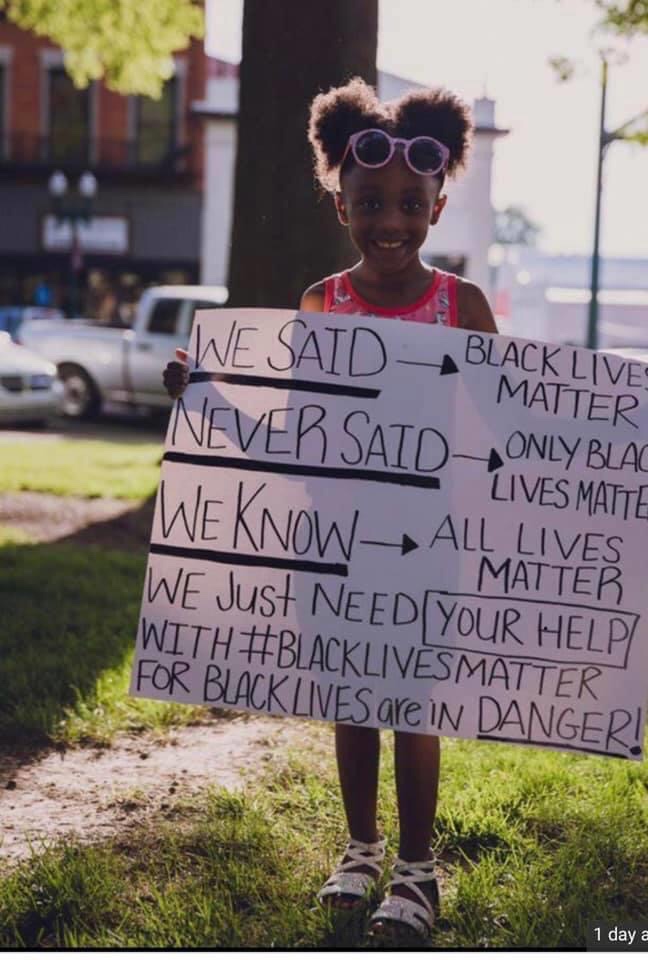 WE SAID → BLACK LIVES
MATTER
NEVER SAID → ONLY BLAC
LIVES MATTE
WE KNOW → ALL LIVES
MATTER
WE Just NEED YOUR HELP
WITH #BLACKLIVESMATTER
FOR BLACK LIVES are iN DANGER!
1 day a